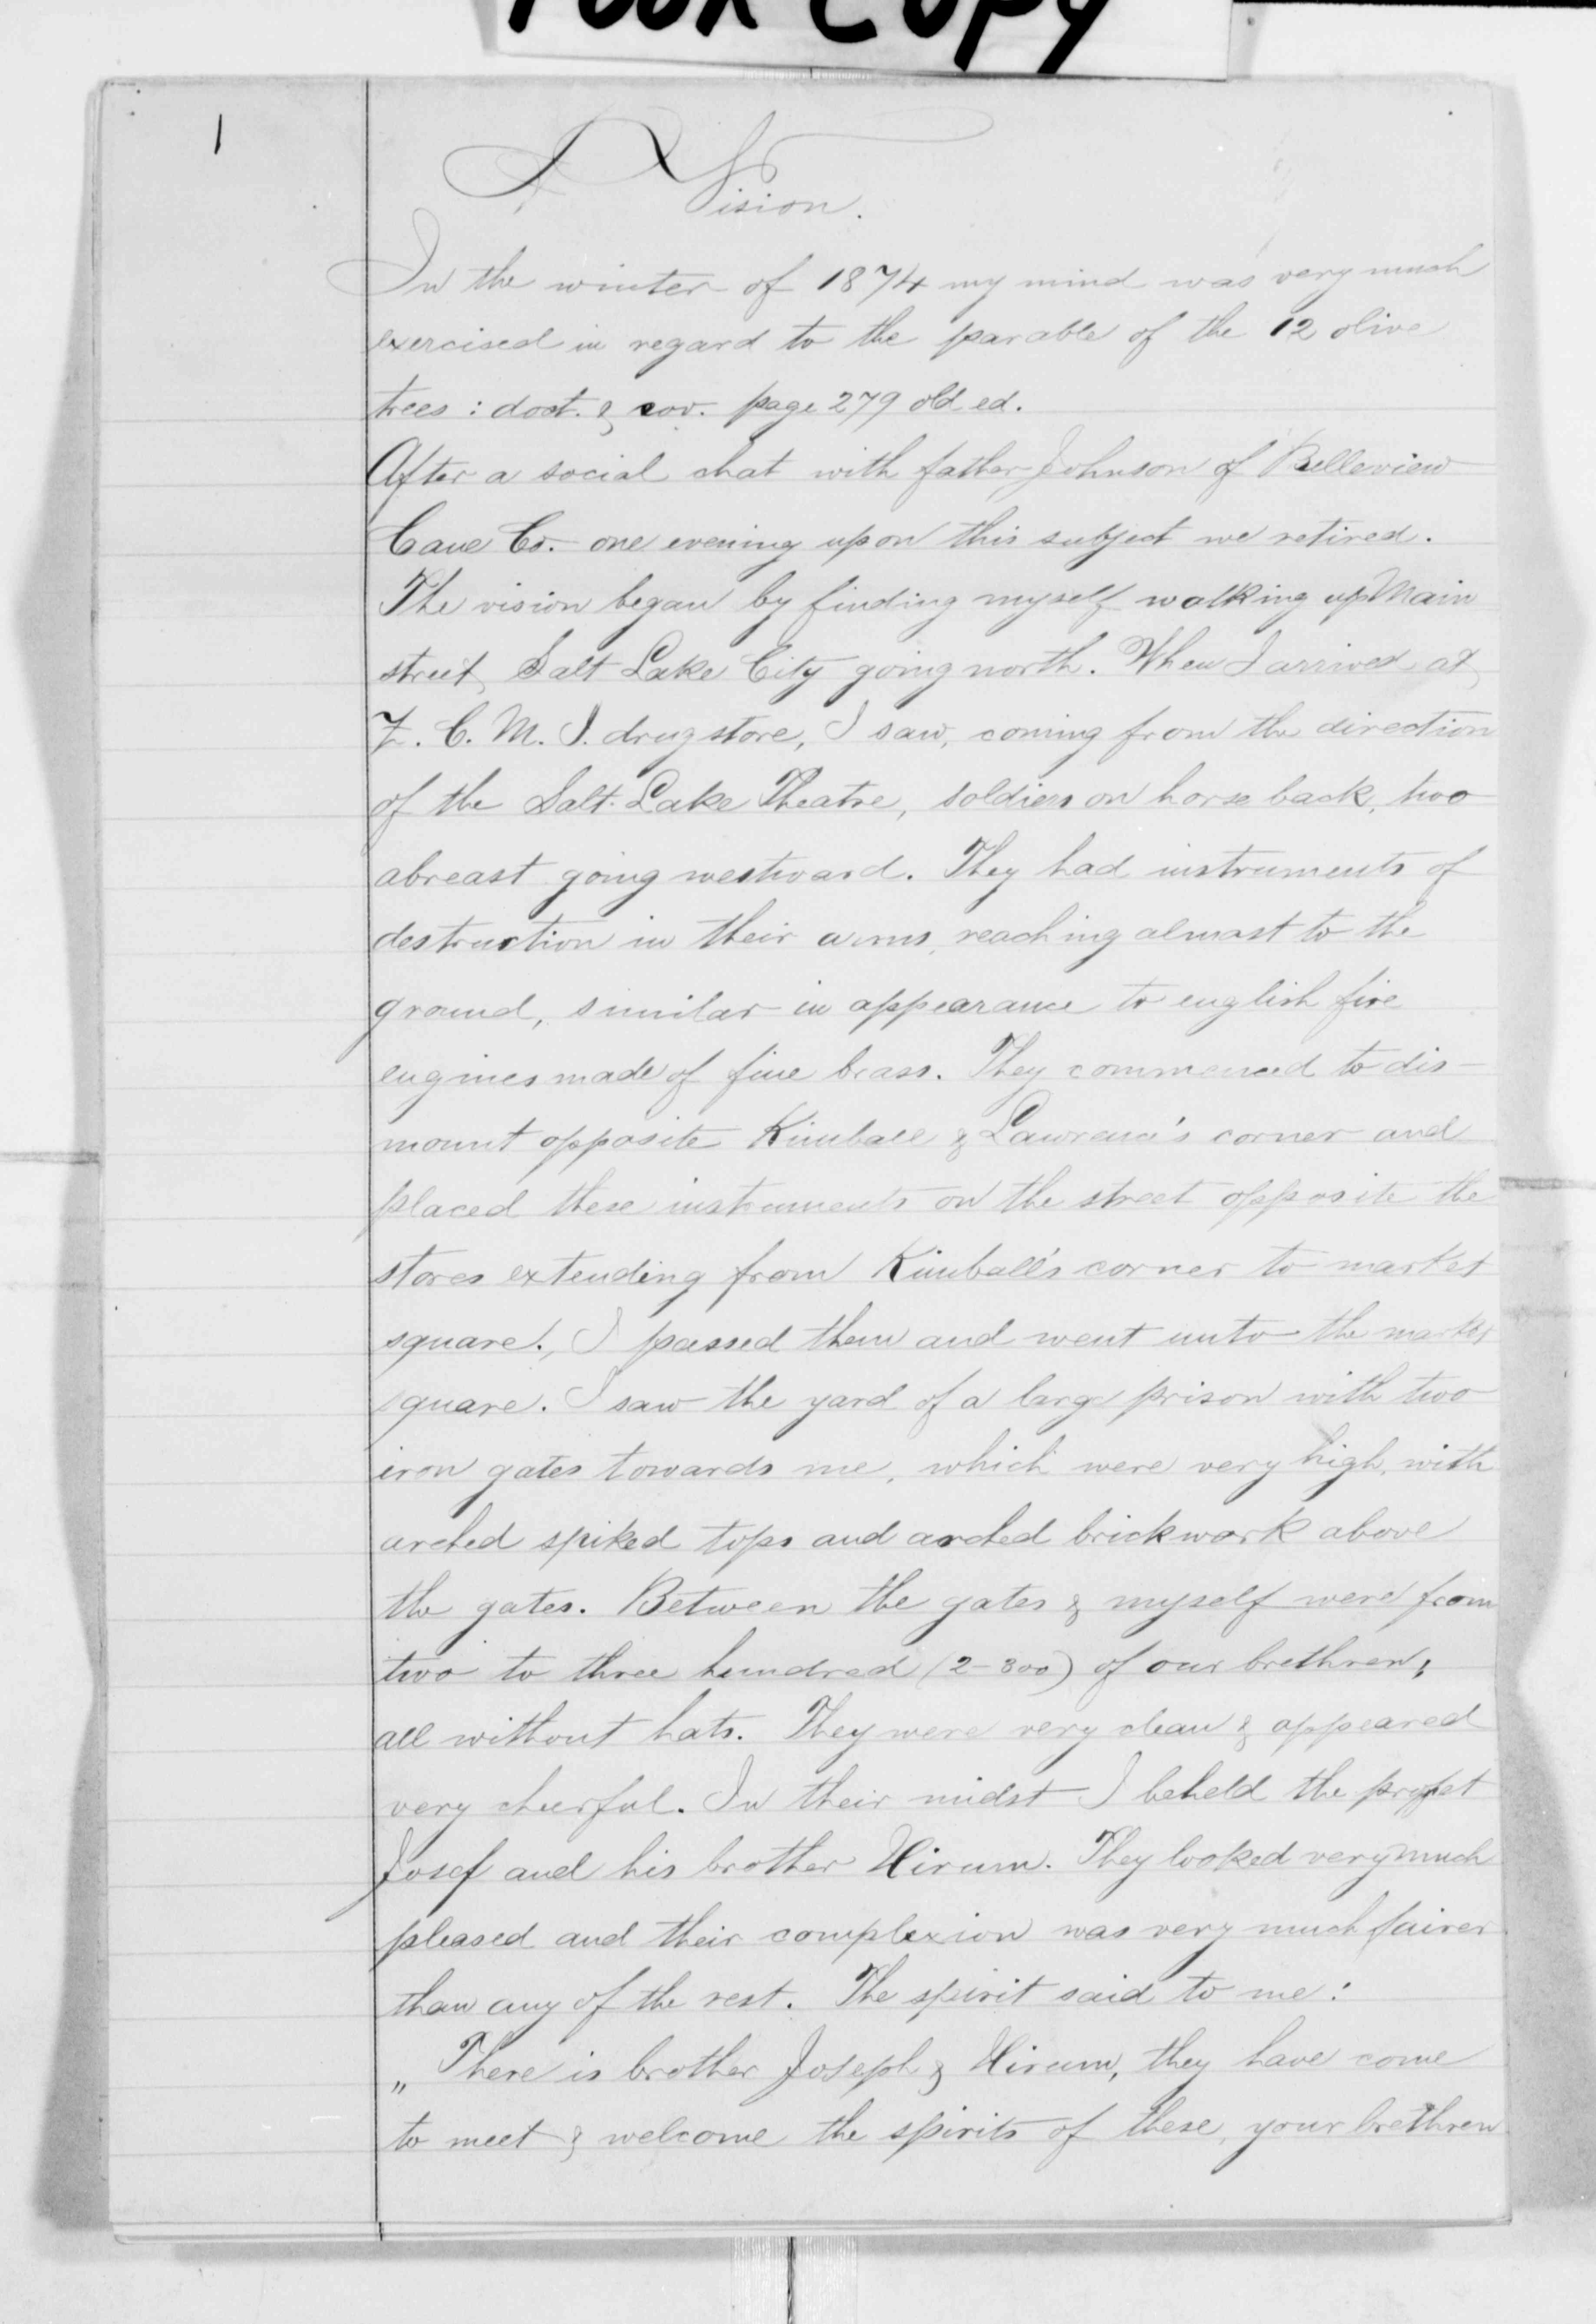 Poor Copy
1
A Vision.
In the winter of 1874 my mind was very much
exercised in regard to the parable of the 12 olive
trees : doct. & cov. page 279 old ed.
After a social chat with father Johnson of Belleview
Cane Co. one evening upon this subject we retired.
The vision began by finding myself walking up Main
street, Salt Lake City going north. When I arrived at
Z. C. M. I. drugstore, I saw, coming from the direction
of the Salt-Lake Theatre, soldiers on horse back, two
abreast going westward. They had instruments of
destruction in their arms, reaching almast to the
ground, similar in appearance to english fire
engines made of fine brass. They commenced to dis-
mount opposite Kimball & Lawrence's corner and
placed these instruments on the street opposite the
stores extending from Kimball's corner to market
square., I passed them and went unto the market
square. I saw the yard of a large prison with two
iron gates towards me, which were very high, with
arched spiked tops and arched brickwork above
the gates. Between the gates & myself were from
two to three hundred (2-300) of our brethren,
all without hats. They were very clean & appeared
very cheerful. In their midst I beheld the profet
Josef and his brother Hirum. They looked very much
pleased and their complexion was very much fairer
than any of the rest. The spirit said to me:
„ There is brother Joseph & Hirum, they have come
to meet & welcome the spirits of these, your brethren